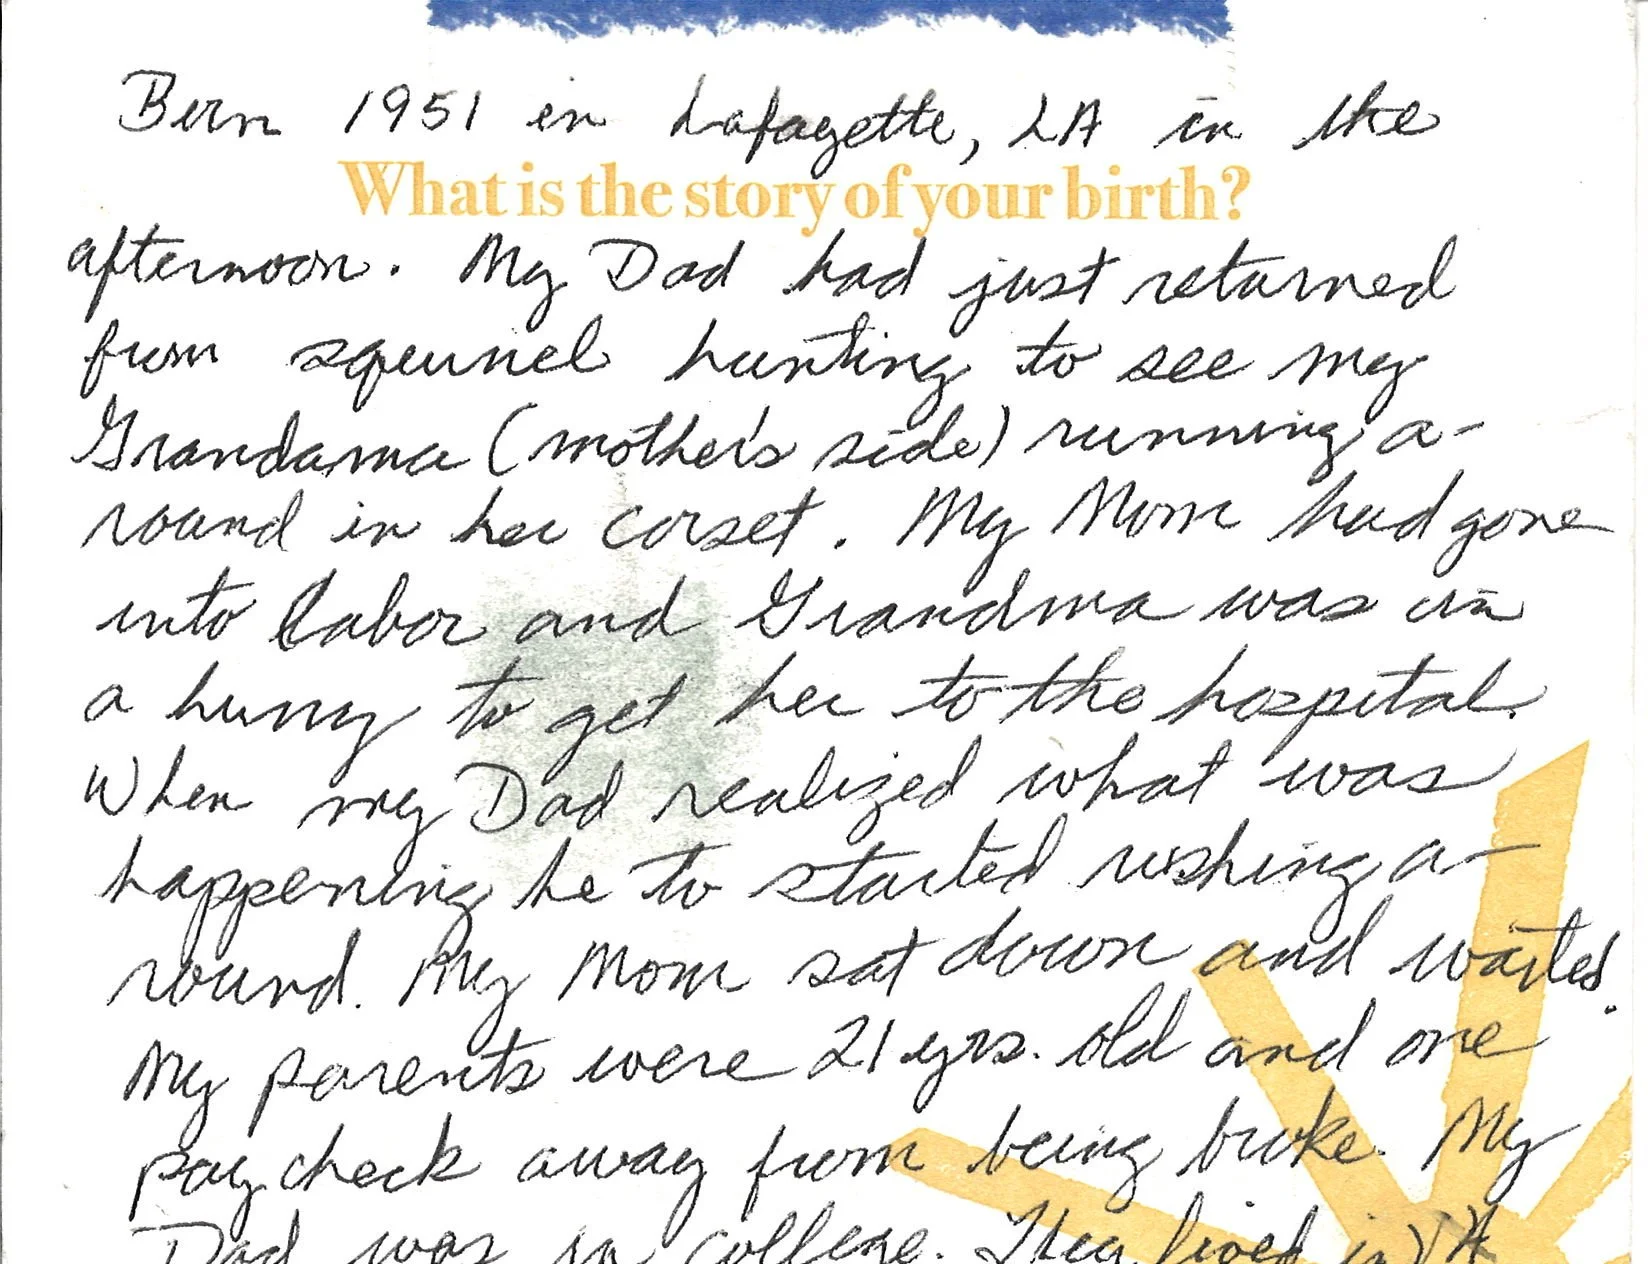 Born 1951 in Lafayette, LA in the
What is the story of your birth?
afternoon. My Dad had just returned
from squirrel hunting to see my
Grandama (mother's side) running a-
round in her corset. My Mom had gone
into labor and Grandma was in
a hurry to get her to the hospital.
When my Dad realized what was
happening he to started rushing a-
round. My Mom sat down and waited.
My parents were 21 yrs. old and one
paycheck away from being broke. My
Dad was in college. They lived in